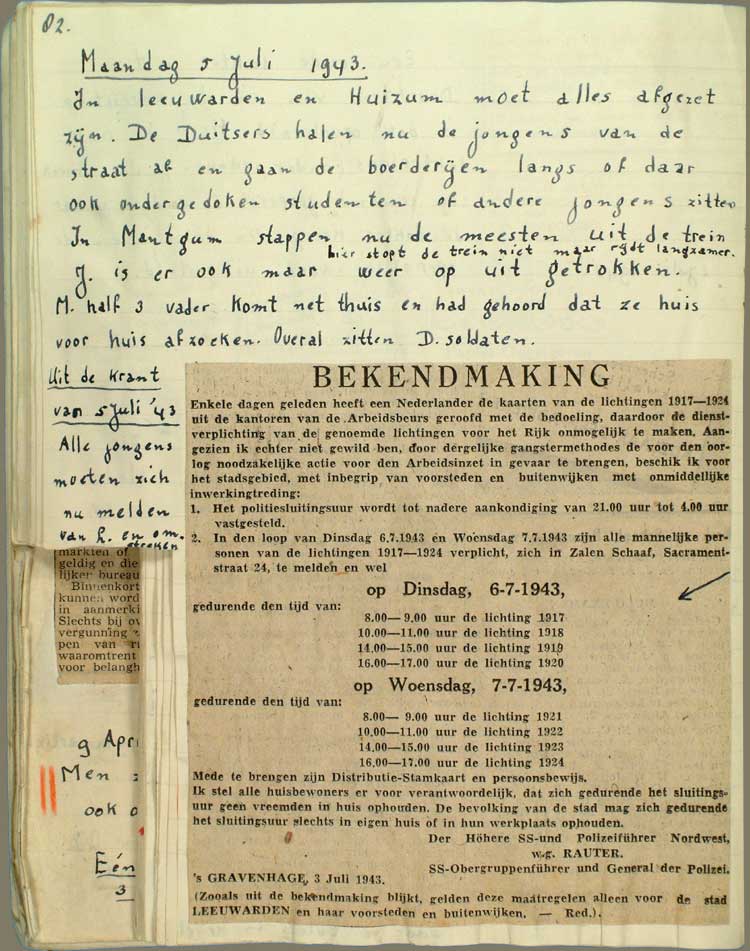 82.
Maandag 5 Juli 1943.
In leeuwarden en Huizum moet alles afgezet
zijn. De Duitsers halen nu de jongens van de
straat af en gaan de boerderijen langs of daar
ook ondergedoken studenten of andere jongens zitten
In Mantgum stappen nu de meesten uit de trein
hier stopt de trein niet maar rijdt langzamer.
J. is er ook maar weer op uit getrokken.
M. half 3 vader komt net thuis en had gehoord dat ze huis
voor huis afzoeken. Overal zitten D. soldaten.
Uit de krant
van 5 juli '43
Alle jongens
moeten zich
nu melden
van L. en om-
streken
BEKENDMAKING
Enkele dagen geleden heeft een Nederlander de kaarten van de lichtingen 1917—1924
uit de kantoren van de Arbeidsbeurs geroofd met de bedoeling, daardoor de dienst-
verplichting van de genoemde lichtingen voor het Rijk onmogelijk te maken. Aan-
gezien ik echter niet gewild ben, door dergelijke gangstermethodes de voor den oor-
log noodzakelijke actie voor den Arbeidsinzet in gevaar te brengen, beschik ik voor
het stadsgebied, met inbegrip van voorsteden en buitenwijken met onmiddellijke
inwerkingtreding:
1. Het politiesluitingsuur wordt tot nadere aankondiging van 21.00 uur tot 4.00 uur
vastgesteld.
2. In den loop van Dinsdag 6.7.1943 en Woensdag 7.7.1943 zijn alle mannelijke per-
sonen van de lichtingen 1917—1924 verplicht, zich in Zalen Schaaf, Sacrament-
straat 24, te melden en wel
op Dinsdag, 6-7-1943,
gedurende den tijd van:
8.00— 9.00 uur de lichting 1917
10.00—11.00 uur de lichting 1918
14.00—15.00 uur de lichting 1919
16.00—17.00 uur de lichting 1920
op Woensdag, 7-7-1943,
gedurende den tijd van:
8.00— 9.00 uur de lichting 1921
10.00—11.00 uur de lichting 1922
14.00—15.00 uur de lichting 1923
16.00—17.00 uur de lichting 1924
Mede te brengen zijn Distributie-Stamkaart en persoonsbewijs.
Ik stel alle huisbewoners er voor verantwoordelijk, dat zich gedurende het sluitings-
uur geen vreemden in huis ophouden. De bevolking van de stad mag zich gedurende
het sluitingsuur slechts in eigen huis of in hun werkplaats ophouden.
Der Höhere SS-und Polizeiführer Nordwest,
w.g. RAUTER.
SS-Obergruppenführer und General der Polizei.
's GRAVENHAGE, 3 Juli 1943.
(Zooals uit de bekendmaking blijkt, gelden deze maatregelen alleen voor de stad
LEEUWARDEN en haar voorsteden en buitenwijken. — Red.).
markten of
geldig en die
lijker bureau
Binnenkort
kunnen word
in aanmerki
Slechts bij
vergunning
pen van
waaromtrent
voor belangh
9 Apri
Men
ook
Eén
3